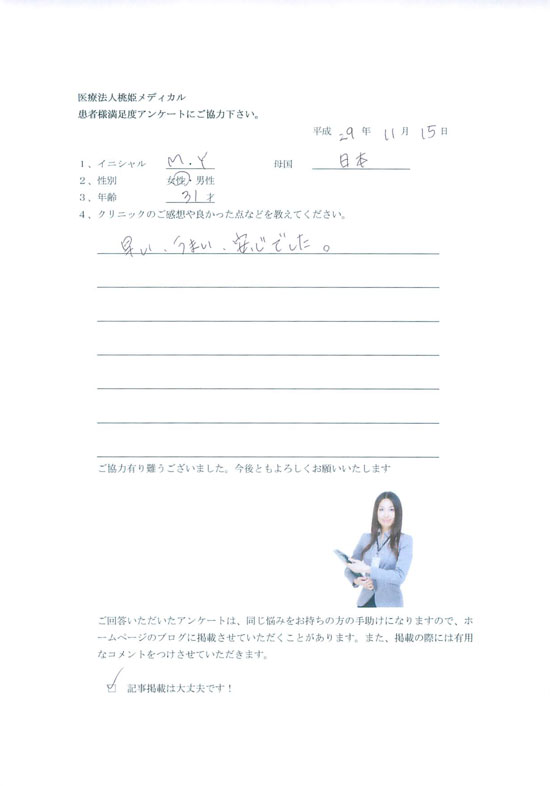 医療法人桃姫メディカル
患者様満足度アンケートにご協力下さい。
平成 29 年 11 月 15 日
1、イニシャル M.Y 母国 日本
2、性別 女性・男性
3、年齢 31 才
4、クリニックのご感想や良かった点などを教えてください。
早い、うまい、安心でした。
ご協力有り難うございました。今後ともよろしくお願いいたします
ご回答いただいたアンケートは、同じ悩みをお持ちの方の手助けになりますので、ホ
ームページのブログに掲載させていただくことがあります。また、掲載の際には有用
なコメントをつけさせていただきます。
記事掲載は大丈夫です！